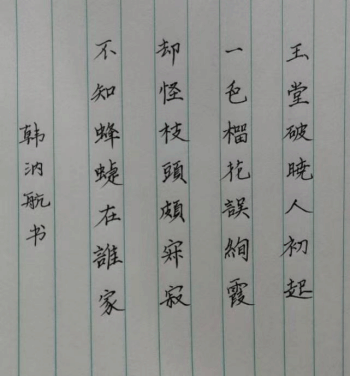 玉堂破曉人初起
一色榴花誤絢霞
却怪枝頭頗寂寂
不知蜂蜨在誰家
韩汭航书